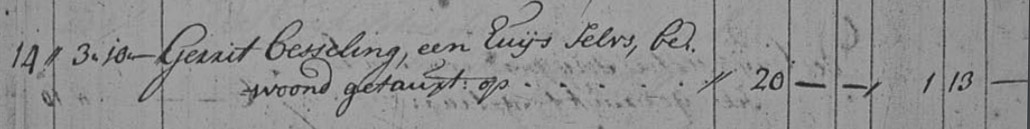 14 // 3„ 10„ — Gerrit Besseling, een Huijs Selvs, bed.
woond getauxt: op . . . . . // 20 — — // 1 13 —